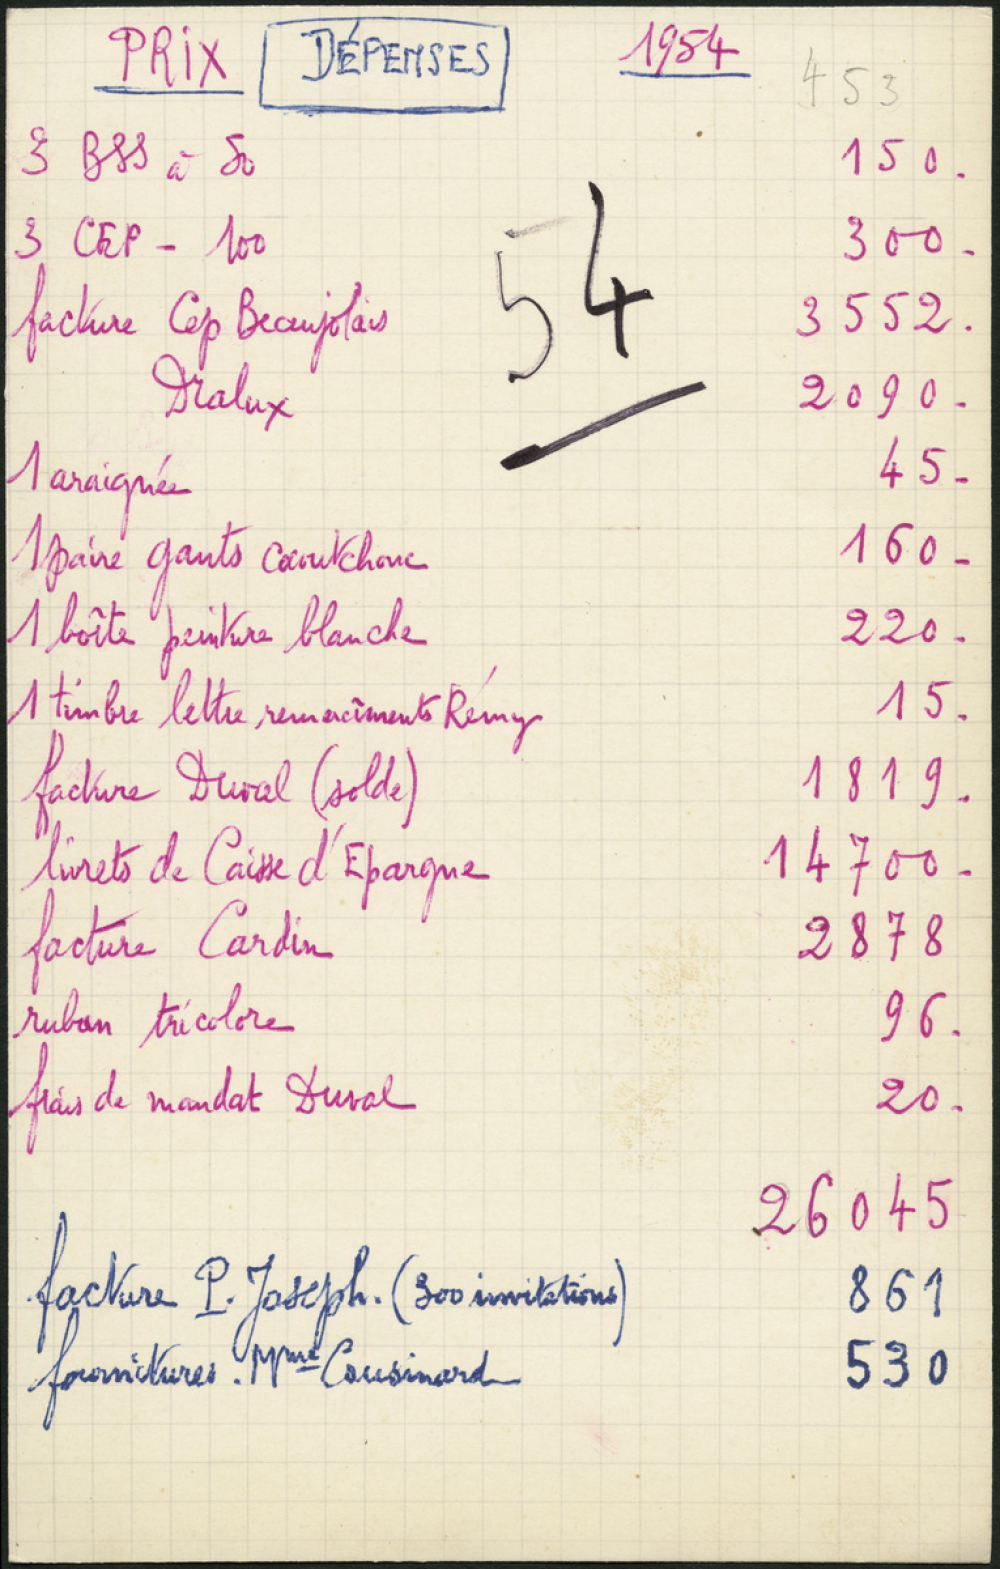 PRIX DÉPENSES 1954
453
3 BSS à 50 150.
3 CEP - 100 300-
54
facture Cep Beaujolais 3552.
Dralux 2090.
1 araignée 45-
1 paire gants caoutchouc 160-
1 boîte peinture blanche 220.
1 timbre lettre remerciments Rémy 15.
facture Duval (solde) 1819.
livrets de Caisse d'Epargne 14700-
facture Cardin 2878
ruban tricolore 96.
frais de mandat Duval 20.
26045
facture P. Joseph. (300 invitations) 861
fournitures. Mme Cousinard 530